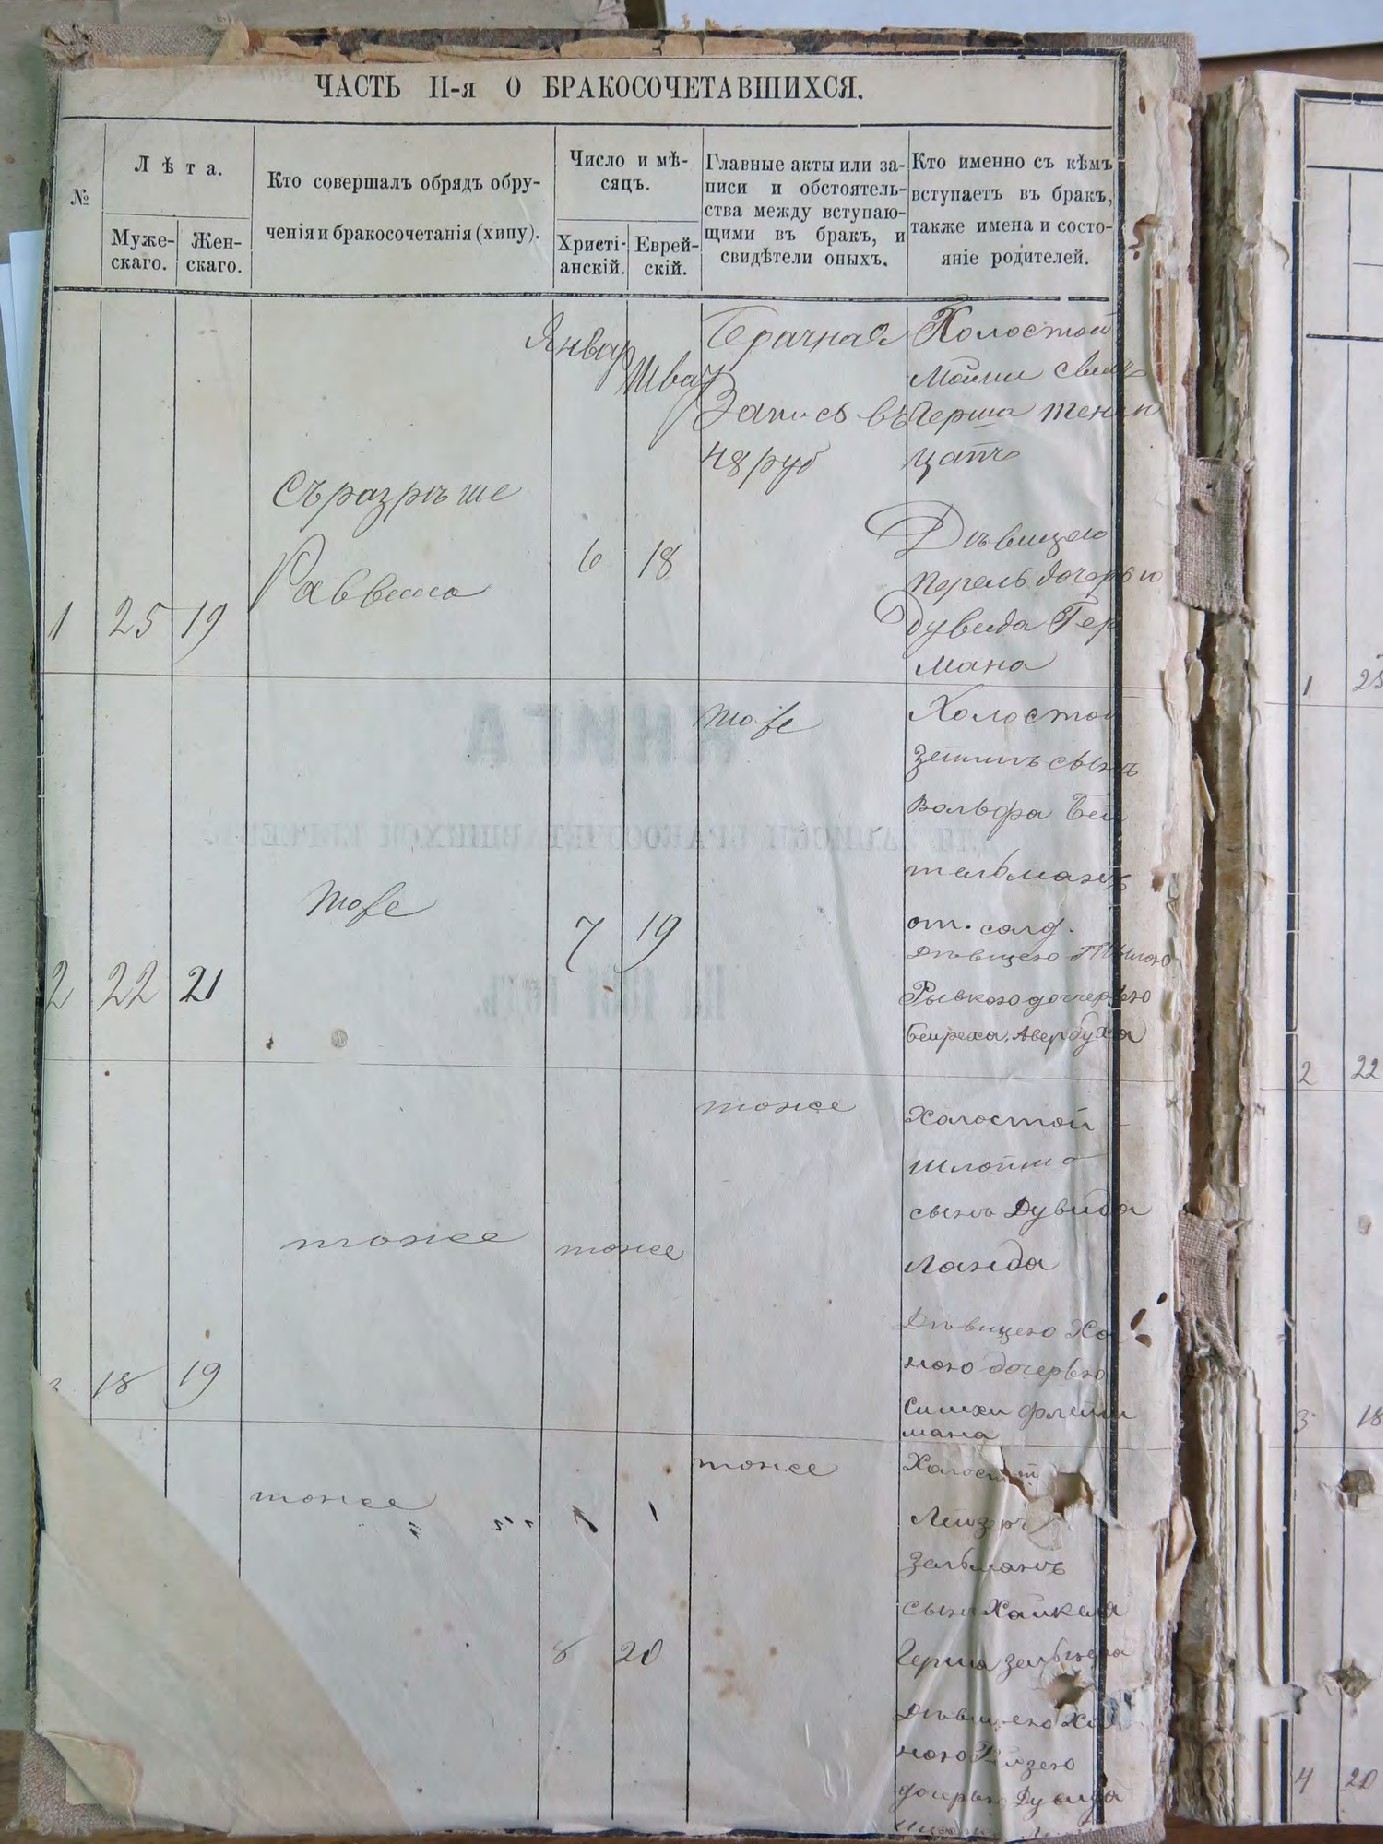 ЧАСТЬ II-я О БРАКОСОЧЕТАВШИХСЯ.
№
Лѣта.
Муже-
скаго.
Жен-
скаго.
Кто совершалъ обрядъ обру-
ченія и бракосочетанія (хипу).
Число и мѣ-
сяцъ.
Христі-
анскій.
Еврей-
скій.
Главные акты или за-
писи и обстоятель-
ства между вступаю-
щими въ бракъ, и
свидѣтели оныхъ.
Кто именно съ кѣмъ
вступаетъ въ бракъ,
также имена и состо-
яніе родителей.
1
25
19
Съ разрѣше
Раввина
Январ
6
Шват
18
Брачная
Запись въ
48 руб
Холостой
сынъ
Герша
Дѣвицею
Перель дочерью
Дувида Гер
мана
2
22
21
тоже
7
19
тоже
Холостой
сынъ
Вольфа Бей
тельманъ
от. солд.
Дѣвицею
Рывкою дочерью
Бейреха Авербуха
18
19
тоже
тоже
тоже
Холостой
Шлойма
сынъ Дувида
Ланда
Дѣвицею Ха
ною дочерью
Симхи Флейш
мана
тоже
8
20
тоже
Холостой
Лейзеръ
Зальманъ
сынъ Хайкеля
Герша
Дѣвицею
дочерью Дувида
1
25
2
22
3
18
4
20